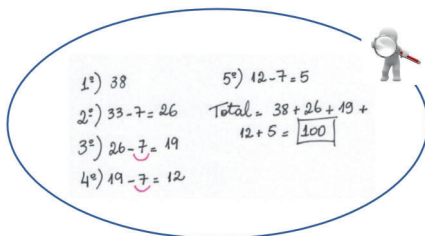 1º) 38
2º) 33-7=26
3º) 26-7=19
4º) 19-7=12
5º) 12-7=5
Total = 38+26+19+
12+5= 100